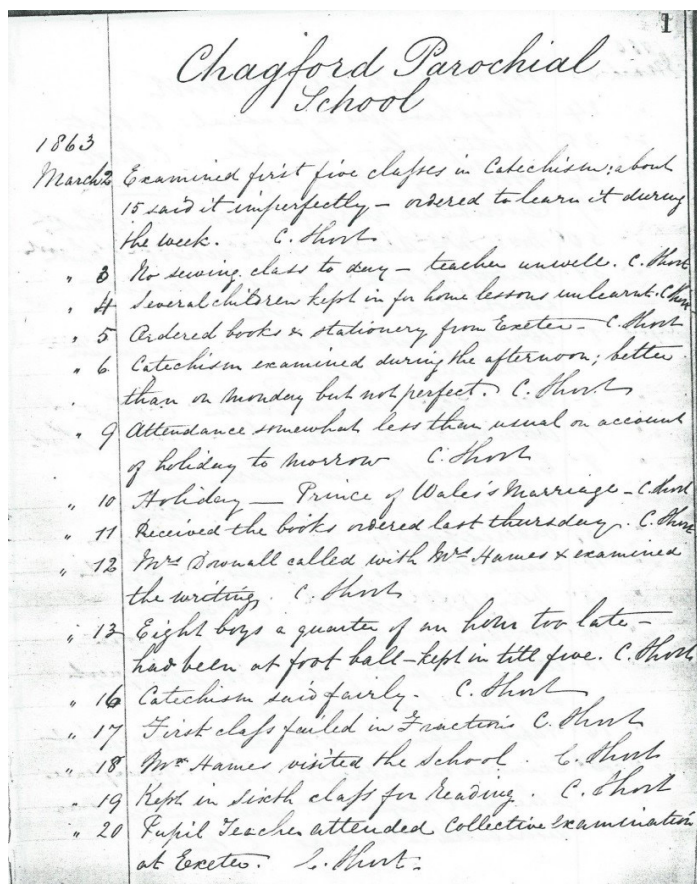 1
Chagford Parochial
School
1863
March 2 Examined first five classes in Catechism; about
15 said it imperfectly – ordered to learn it during
the week. C. Short
" 3 No sewing class to day – teacher unwell. C. Short
" 4 Several children kept in for home lessons unlearnt. C. Short
" 5 Ordered books & stationery from Exeter – C. Short
" 6 Catechism examined during the afternoon; better
than on Monday but not perfect. C. Short
" 9 Attendance somewhat less than usual on account
of holiday to morrow C. Short
" 10 Holiday — Prince of Wales's Marriage – C. Short
" 11 Received the books ordered last Thursday. C. Short
" 12 Mrs Downall called with Mrs Hames & examined
the writing. C. Short
" 13 Eight boys a quarter of an hour too late –
had been at foot ball – kept in till five. C. Short
" 16 Catechism said fairly. C. Short
" 17 First class failed in Fractions C. Short
" 18 Mr Hames visited the School. C. Short
" 19 Kept in sixth class for reading. C. Short
" 20 Pupil Teacher attended Collective Examination
at Exeter. C. Short.